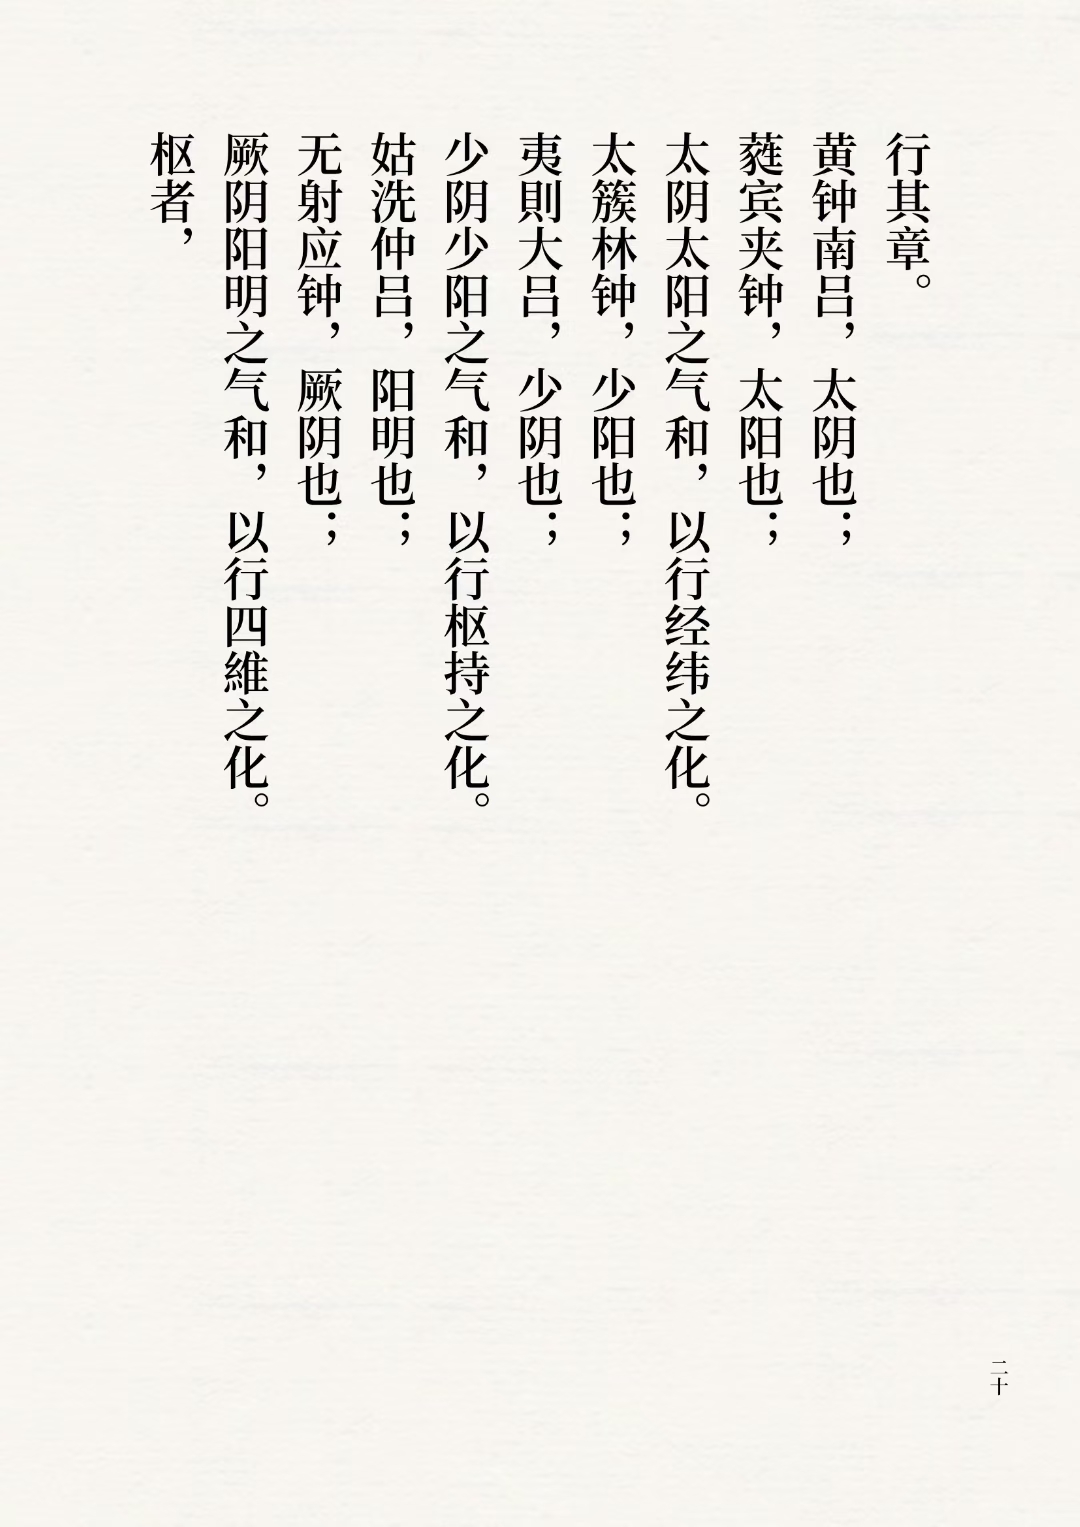 行其章。
黄钟南吕，太阴也；
蕤宾夹钟，太阳也；
太阴太阳之气和，以行经纬之化。
太簇林钟，少阳也；
夷則大吕，少阴也；
少阴少阳之气和，以行枢持之化。
姑洗仲吕，阳明也；
无射应钟，厥阴也；
厥阴阳明之气和，以行四維之化。
枢者，
二十